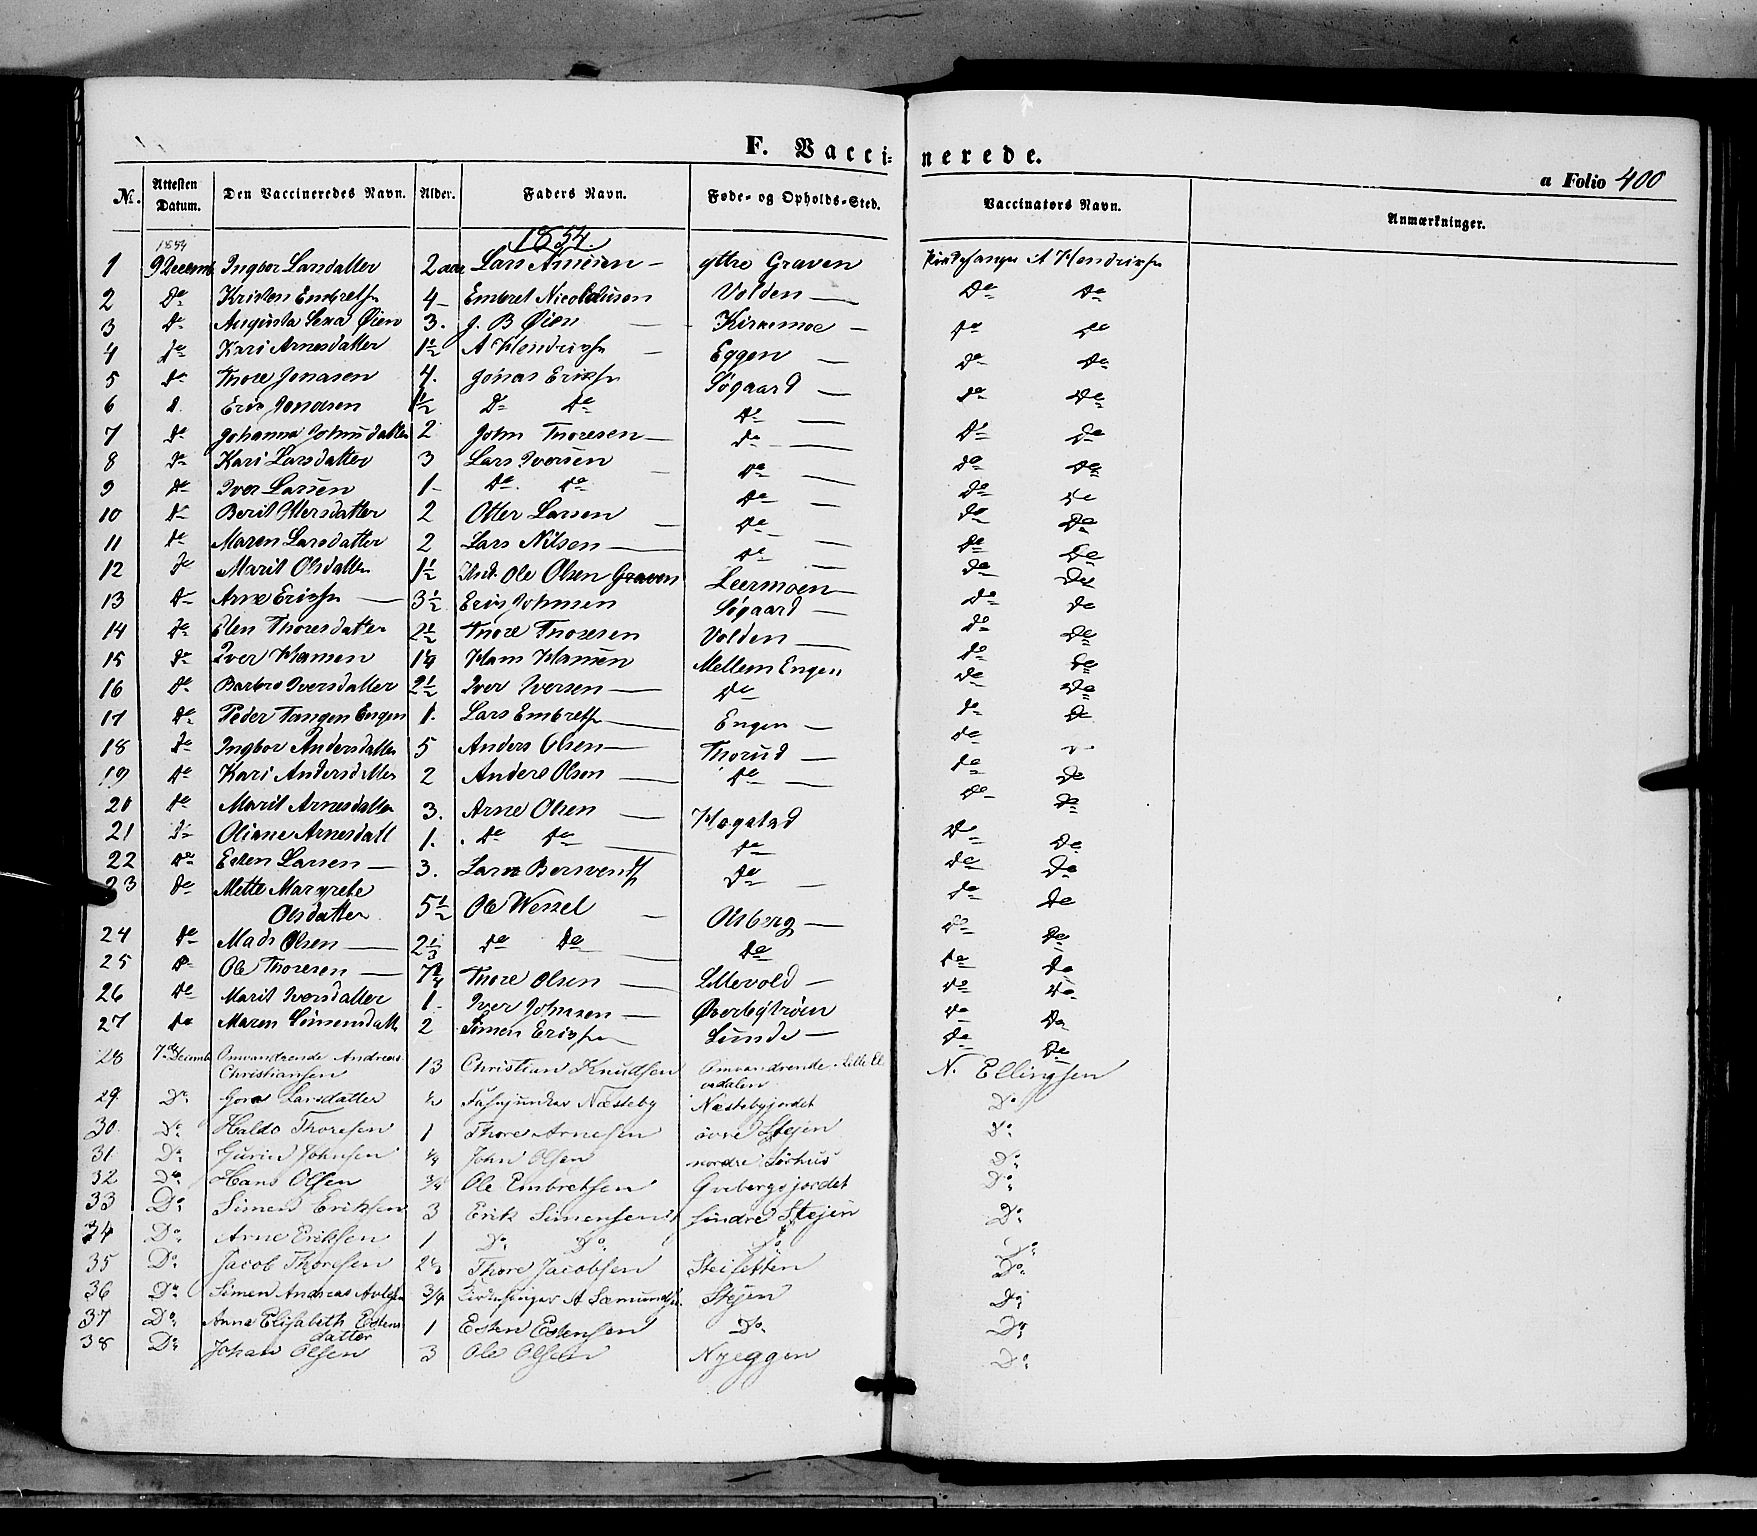 F. Vaccinerede.
a Folio 400
No. Attesten Datum. Den Vaccineredes Navn. Alder. Faders Navn. Føde- og Opholds-Sted. Vaccinators Navn. Anmærkninger.
1854 1854.
1 9 Decemb Ingbor Larsdatter 2 aar Lars Arnesen yttre Graven Kirkesanger A Hendriksn
2 Do Kristen Embretsn 4 Embret Nicolaisen Volden Do Do
3 do Augusta Øien 3. J. B Øien Kirkemoe do do
4 do Kari Arnesdatter 1½ A Hendriksn Eggen do do
5 do Thore Jonasen 4. Jonas Eriksn Søgaard do do
6 d Erik Jonasen 1½ Do do do do do
7 do Johanna Johnsdatter 2 John Thoresen do do do
8 do Kari Larsdatter 3 Lars Iversen do do do
9 do Iver Larsen 1 do do do do do
10 do Berit Ottersdatter 2 Otter Larsen do do do
11 do Maren Larsdatter 2 Lars Nilsen do do do
12 do Marit Olsdatter 1½ Ole Olsen Graven Leermoen do do
13 do Arne Eriksn 3½ Erik Johnsen Søgaard do do
14 do Elen Thoresdatter 2½ Thore Thoresen Volden do do
15 do Iver Hansen 1¼ Hans Hansen Mellem Engen do do
16 do Barbro Iversdatter 2½ Iver Iversen do do do
17 do Peder Tangen Engen 1. Lars Embretsn Engen do do
18 do Ingbor Andersdatter 5 Anders Olsen Thorud do
19 do Kari Andersdatter 2 Anders Olsen do do do
20 do Marit Arnesdatter 3. Arne Olsen Høgstad do do
21 do Oliane Arnesdatt 1. do do do do do
22 do Esten Larsen 3. do do do
23 do Mette Margrete
Olsdatter 5½ Ole Wessel Olsberg do do
24 do Mads Olsen 2⅓ do do do do do
25 do Ole Thoresen Thore Olsen Lillevold do do
26 do Marit Iversdatter 1. Iver Johnsen Øverbystrøen do do
27 do Maren Simensdatt 2 Simen Eriksn Lunde do do
28 7de Decemb Omvandrende Andreas
Christiansen 13 Christian Knudsen Omvandrende. Lille El
vedalen N. Ellingsen
29. Do Larsdatter ½ Næsteby Næstebyjordet Do
30. Do Haldo Thoresen 1 Thore Arnesen øvre Stejen Do
31. Do Gurin Johnsen ¼ John Olsen nordre Sørhus Do
32 Do Hans Olsen ¾ Ole Embretsen Gvebergsjordet Do
33 Do Simen Eriksen 3 Erik Simensen søndre Stejen Do
34 Do Arne Eriksen 1 Do Do Do Do
35 Do Jacob Thoresen Thore Jacobsen Do
36 Do Simen Andreas ¾ Kirkesanger A Sæmundsn. Stejen Do
37 Do Anne Elisabeth Estens
datter 1 Esten Estensen Do Do
38 Do Johan Olsen 3 Ole Olsen Nyeggen Do